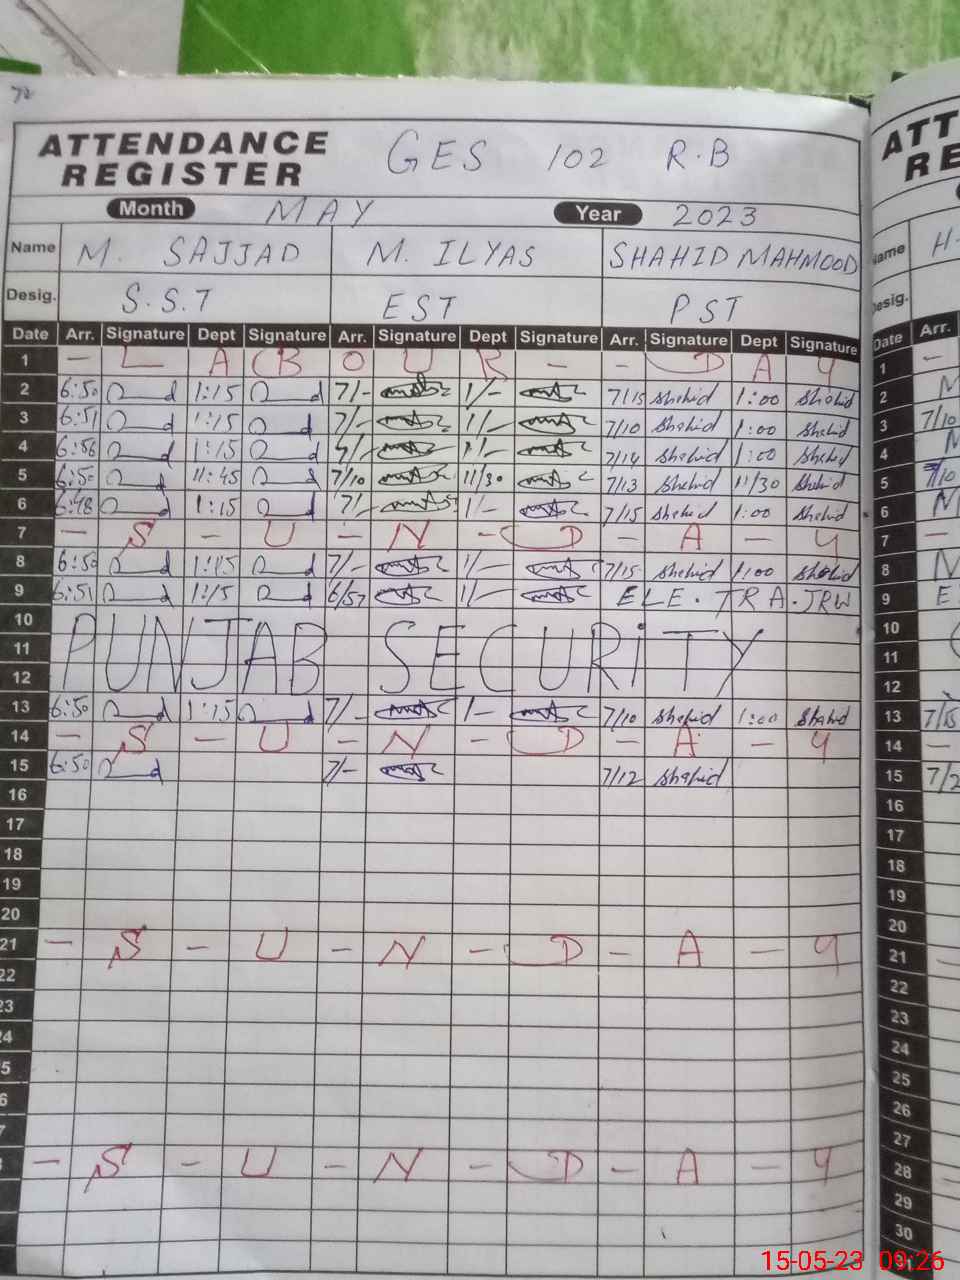 72
ATTENDANCE REGISTER GES 102 R.B
Month MAY Year 2023
Name M. SAJJAD M. ILYAS SHAHID MAHMOOD
Desig. S.S.T EST PST
Date Arr. Signature Dept Signature Arr. Signature Dept Signature Arr. Signature Dept Signature
1 - L A B O U R - - D A Y
2 6:50 1:15 7/- 1/- 7/15 Shahid 1:00 Shahid
3 6:51 1:15 7/- 1/- 7/10 Shahid 1:00 Shahid
4 6:56 1:15 7/- 1/- 7/14 Shahid 1:00 Shahid
5 6:50 11:45 7/10 11/30 7/13 Shahid 11/30 Shahid
6 6:48 1:15 7/- 1/- 7/15 Shahid 1:00 Shahid
7 - S - U - N - D - A - Y
8 6:50 1:15 7/- 1/- 7/15 Shahid 1:00 Shahid
9 6:51 1:15 6/57 1/- ELE. TRA. JRW
10
11 PUNJAB SECURITY
12
13 6:50 1:15 7/- 1/- 7/10 Shahid 1:00 Shahid
14 - S - U - N - D - A - Y
15 6:50 7/- 7/12 Shahid
16
17
18
19
20
21 - S - U - N - D - A - Y
22
23
- S - U - N - D - A - Y
ATT
RE
Name H.
Desig.
Date Arr.
1 -
2 M
3 7/10
4
5 7/10
6
7 -
8
9 E
10
11
12
13 7/15
14 -
15 7/2
16
17
18
19
20
21
22
23
24
25
26
27
28
29
30
31
15-05-23 09:26